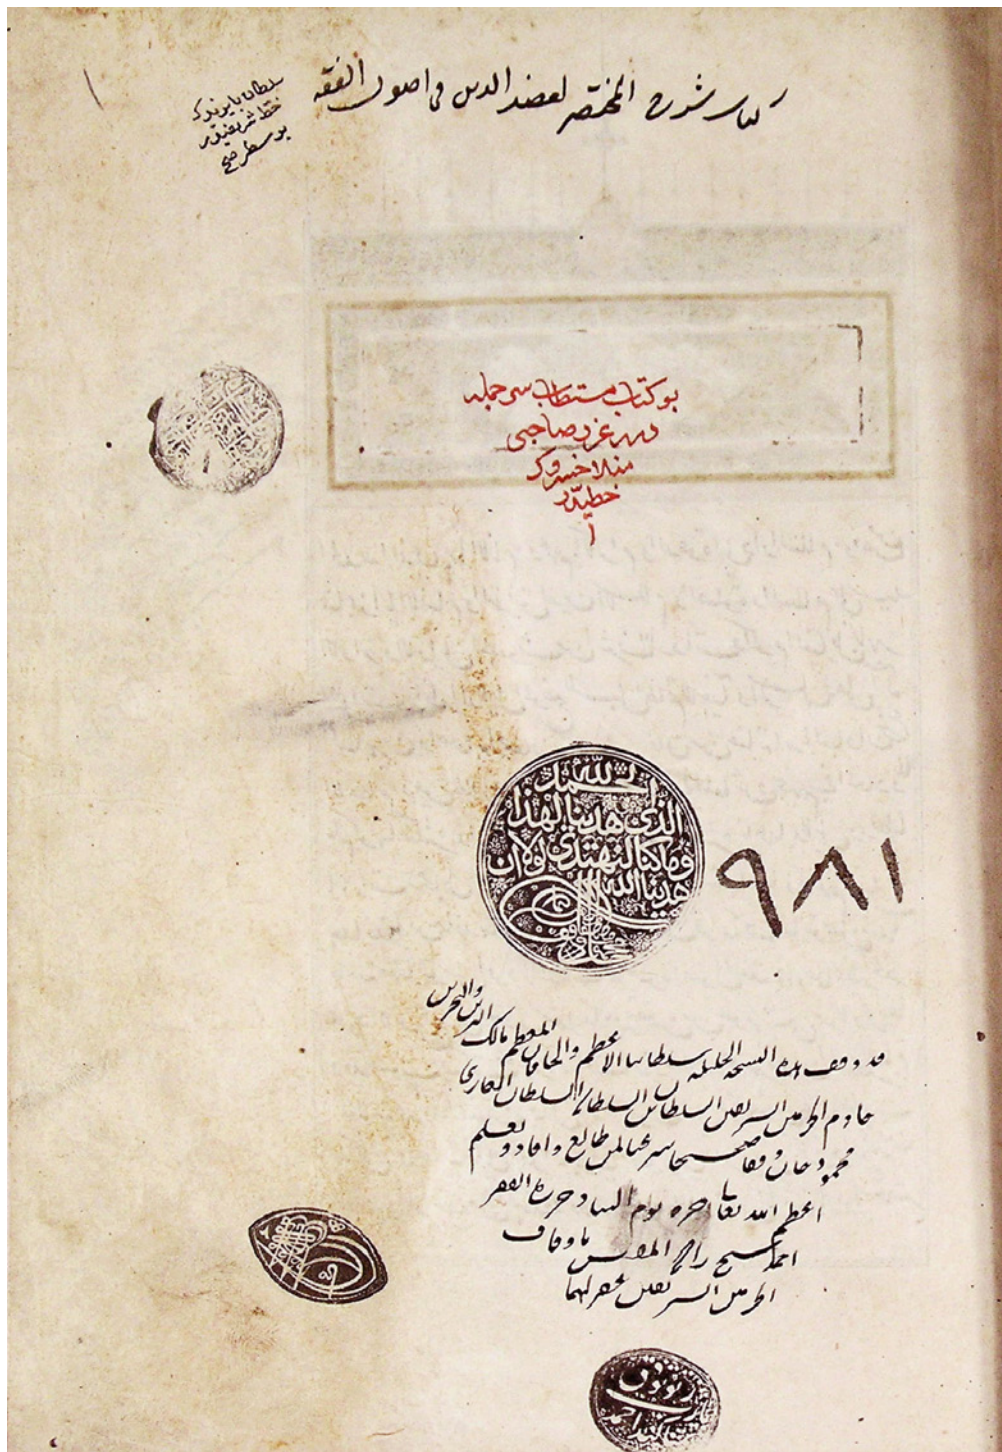 كتاب شرح المختصر لعضد الدين في اصول الفقه
سلطان بايزيدك
خط شريفيدر
بو سطر صح
بو كتاب مستطاب سر جمله
درر غرر صاحبى
منلا خسروك
خطيدر
الحمد لله
الذي هدينا لهذا
وما كنا لنهتدي لولا ان
هدينا الله
٩٨١
قد وقف هذه النسخة الجليلة سلطاننا الاعظم والخاقان المعظم مالك البرين والبحرين
خادم الحرمين الشريفين السلطان بن السلطان السلطان الغازى
محمود خان وقفا صحيحا شرعيا لمن طالع وافاد وتعلم
اعظم الله تعالى اجره يوم التناد حرره الفقير
احمد شيخ زاده المفتش باوقاف
الحرمين الشريفين غفر لهما